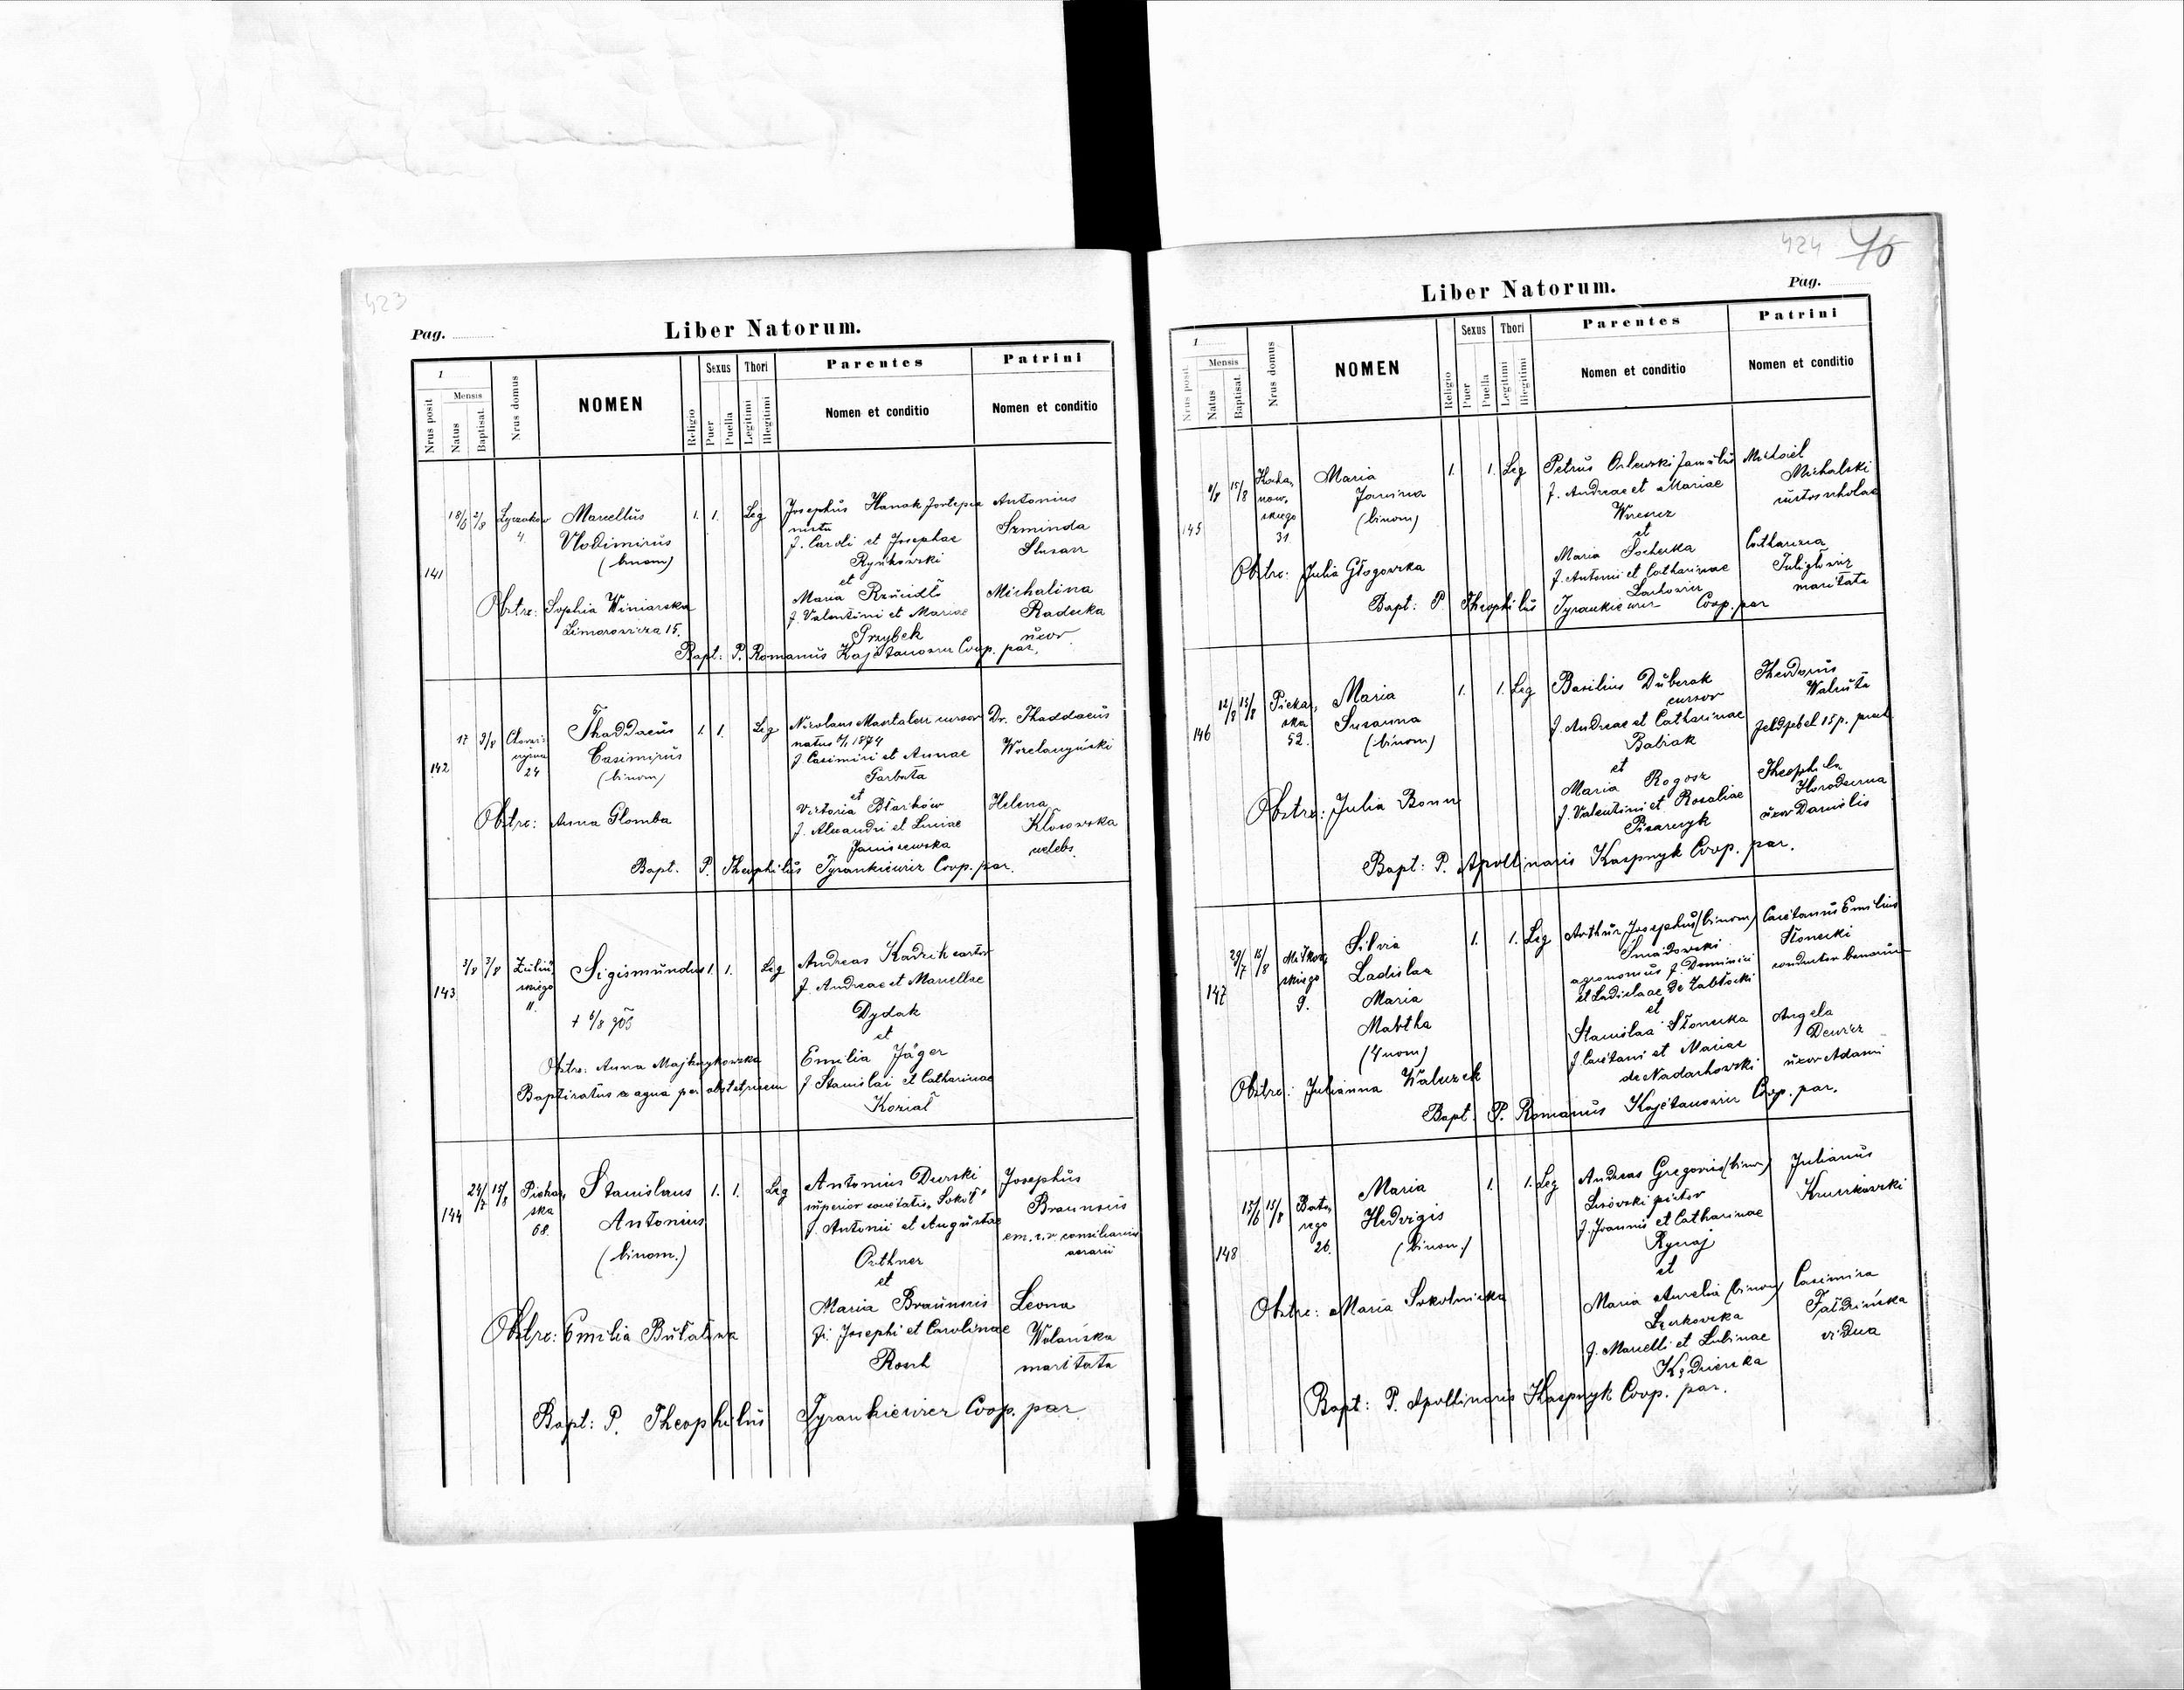 423
Pag.
Liber Natorum.
1
Nrus posit
Mensis
Natus
Baptisat.
Nrus domus
NOMEN
Religio
Sexus
Puer
Puella
Thori
Legitimi
Illegitimi
Parentes
Nomen et conditio
Patrini
Nomen et conditio
141
18/6 2/8 Łyczakow 4
Marcellus
Vlodimirus
(binom)
1. 1. Leg
Josephus Hanak
f. Caroli et Josephae
Rynkowski
et
Maria Rzucidło
f. Valentini et Mariae
Przybek
Antonius
Szminda
Slusarz
Michalina
Radecka
uxor
Obstre: Sophia Winiarska
Zimorowicza 15.
Bapt: P. Romanus Kajetanowicz Coop. par.
142
17 3/8
24
Thaddaeus
Casimirus
(binom)
1. 1. Leg
Nicolaus cursor
natus 6/1 1874
f. Casimiri et Annae
Garbata
et
Victoria
f. Alexandri et Luciae
Janiszewska
Dr. Thaddaeus
Helena
Kłosowska
caelebs
Obstre: Anna Glomba
Bapt. P. Theophilus Tyrankiewicz Coop. par.
143
3/8 3/8 Zieliń,
skiego
11.
Sigismundus
1. 1. Leg
† 6/8 905
Andreas Kadzik
f. Andreae et Marcellae
Dydak
et
Emilia Jäger
f. Stanislai et Catharinae
Koział
Obstre: Anna Majkrzykowska
Baptizatus ex aqua per obstetricem
144
24/7 15/8 Piekar,
ska
68.
Stanislaus
Antonius
(binom.)
1. 1. Leg
Antonius Durski
superior societatis "Sokół"
f. Antonii et Augustae
Orthner
et
Maria Braunseis
f. Josephi et Carolinae
Rosch
Josephus
Braunseis
em. c.r. consiliarius
aerarii
Leona
Wolańska
maritata
Obstre: Emilia Bułatowa
Bapt: P. Theophilus Tyrankiewicz Coop. par
424 46
Liber Natorum.
Pag.
1
Nrus posit.
Mensis
Natus
Baptisat.
Nrus domus
NOMEN
Religio
Sexus
Puer
Puella
Thori
Legitimi
Illegitimi
Parentes
Nomen et conditio
Patrini
Nomen et conditio
145
15/8 Kocha,
now,
skiego
31
Maria
Janina
(binom)
1. 1. Leg
Petrus Orlewski famulus
f. Andreae et Mariae
et
Maria Sochecka
f. Antonii et Catharinae
Michael
Michalski
custos scholae
Catharina
Tuligłowicz
maritata
Obstre: Julia Głogowska
Bapt: P. Theophilus Tyrankiewicz Coop. par
146
12/8 15/8 Piekar,
ska
52.
Maria
Susanna
(binom)
1. 1. Leg
Basilius Duberak
cursor
f. Andreae et Catharinae
Babiak
et
Maria Rogosz
f. Valentini et Rosaliae
Pisarczyk
Theodorus
Waluta
Feldjebel 15 p.
Theophila
Horodecka
uxor Danielis
Obstre: Julia Bonn
Bapt: P. Apollinaris Kaspnyk Coop. par.
147
29/7 15/8 Miłkow,
skiego
9.
Silvia
Ladislaa
Maria
Martha
(4 nom)
1. 1. Leg
Arthur Josephus (binom)
Śniadowski
agronomus f. Dominici
et Ladislaae de Zabłocki
et
Stanislaa Słonecka
f. Caietani et Mariae
de Nadachowski
Caietanus Emilius
Słonecki
Angela
uxor Adami
Obstre: Julianna Waluszek
Bapt: P. Romanus Kajetanowicz Coop. par.
148
15/6 15/8 Bato,
rego
26.
Maria
Hedvigis
(binom.)
1. 1. Leg
Andreas Gregorius (binom)
pictor
f. Joannis et Catharinae
et
Maria Aurelia (binom)
f. Marcelli et Sabinae
Kędzierska
Julianus
Kruszkowski
Casimira
vidua
Obstre: Maria Sokolnicka
Bapt: P. Apollinaris Kaspnyk Coop. par.